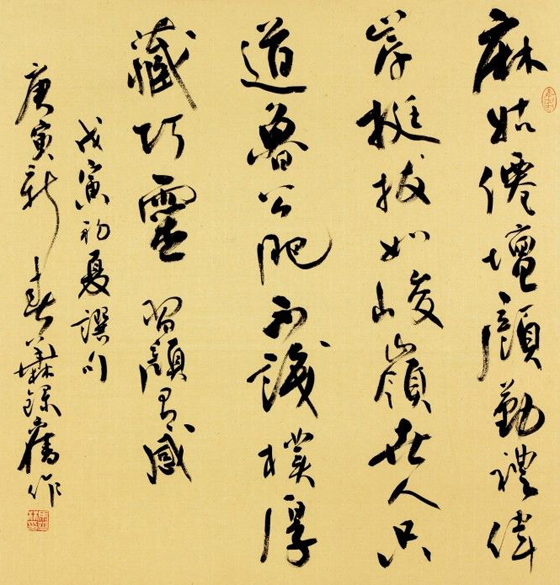 麻姑僊壇顏勤禮偉
岸挺拔如峻嶺世人只
道魯公肥不識樸厚
藏巧靈 習顏有感
戊寅初夏譔句
庚寅新春錄舊作